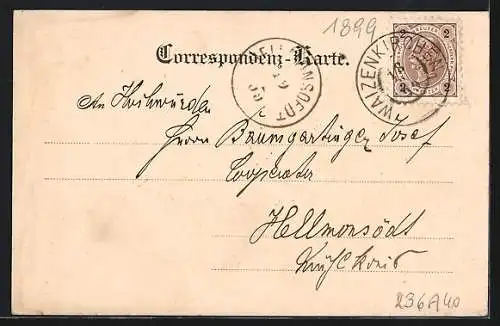 1899
Correspondenz-Karte.
HELLMONSOEDT
WAIZENKIRCHEN
2 2
2 2
An Hochwürden
Herrn Baumgartinger Josef
Cooperator
Hellmonsödt
236A40